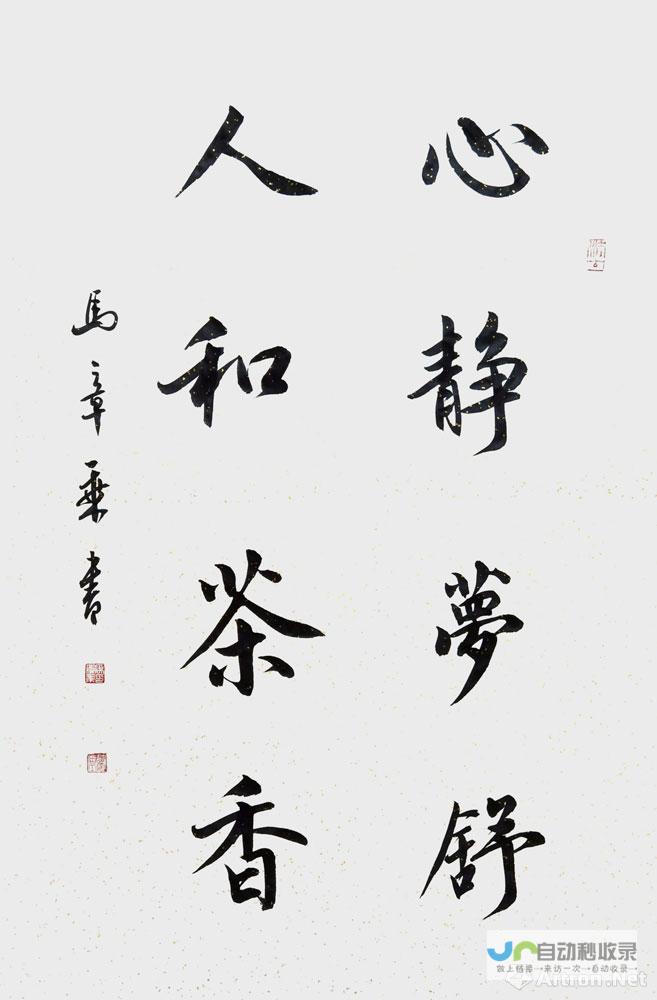 心静夢舒
人和茶香
馬章乘書
自动秒收录
做上链接→来访一次→自动收录
Artron.Net